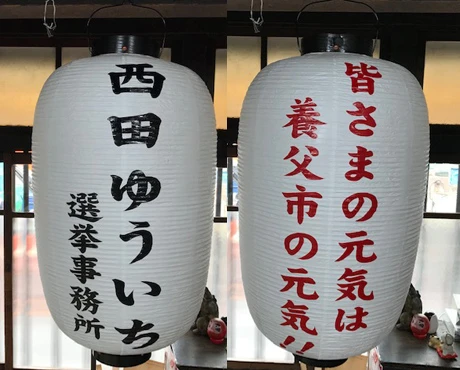 西田ゆういち
選挙事務所
皆さまの元気は
養父市の元気!!